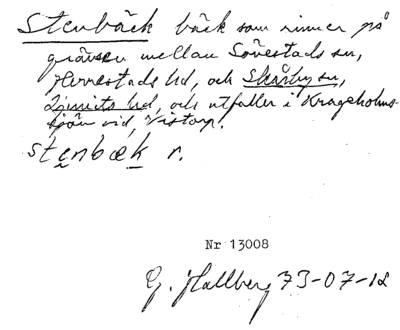 Stenbäck bäck som rinner på
gränsen mellan Sövestads sn,
Herrestads hd, och Skårby sn,
Ljunits hd, och utfaller i Krageholms-
sjön vid Vistorp.
stenbæk r.
Nr 13008
G. Hallberg 73-07-12